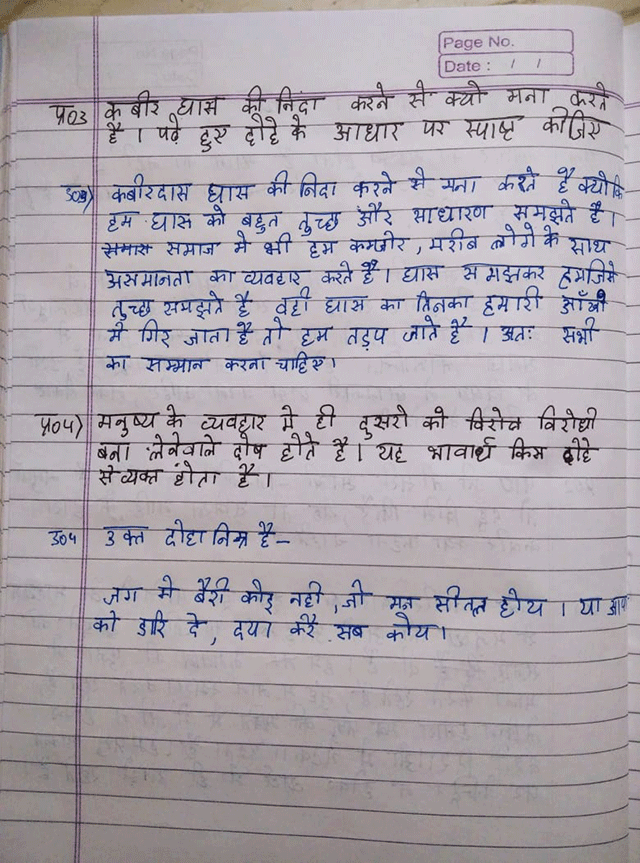 Page No.
Date : / /
प्र03 कबीर घास की निंदा करने से क्यो मना करते
है । पढ़े हुए दोहे के आधार पर स्पष्ट कीजिए
उ03) कबीरदास घास की निंदा करने से मना करते है क्योकि
हम घास को बहुत तुच्छ और साधारण समझते है ।
समास समाज मे भी हम कमजोर, गरीब लोगे के साथ
असमानता का व्यवहार करते है । घास समझकर हम जिसे
तुच्छ समझते है वही घास का तिनका हमारी आँखो
मे गिर जाता है तो हम तड़प जाते है । अतः सभी
का सम्मान करना चाहिए ।
प्र04) मनुष्य के व्यवहार मे ही दुसरो को विरोध विरोधी
बना लेनेवाले दोष होते है । यह भावार्थ किस दोहे
से व्यक्त होता है ।
उ04 उक्त दोहा निम्न है –
जग मे बैरी कोइ नही, जो मन सीतल होय । या आपा
को डारि दे, दया करै सब कोय ।